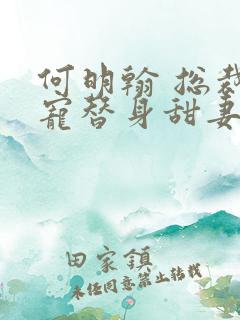 何明翰 总裁
宠替身甜妻
田家镇
未经同意禁止转载